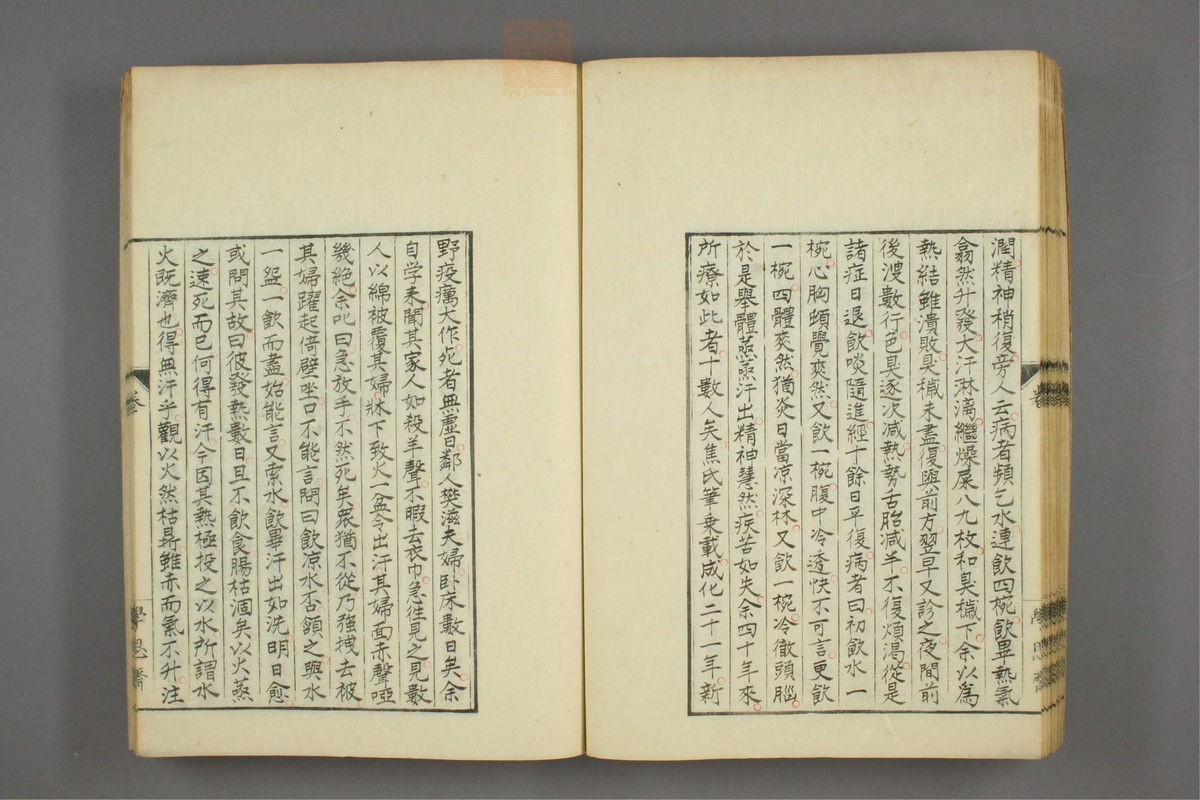 潤精神稍復旁人云病者頻乞水連飲四椀飲畢熱氣
翕然升發大汗淋漓繼燥屎八九枚和臭穢下余以爲
熱結雖潰敗臭穢未盡復與前方翌早又診之夜間前
後溲數行色臭逐次減熱勢舌胎減半不復煩渴從是
諸症日退飲啖隨進經十餘日平復病者曰初飲水一
椀心胸頓覺爽然又飲一椀腹中冷透快不可言更飲
一椀四體爽然猶炎日當凉深林又飲一椀冷徹頭腦
於是擧體蒸蒸汗出精神慧然疾苦如失余四十年來
所療如此者十數人矣焦氏筆乗載成化二十一年新
野疫癘大作死者無虛日鄰人樊滋夫婦臥床數日矣余
自学来聞其家人如殺羊聲不暇去衣巾急徃見之見數
人以綿被覆其婦牀下致火一盆令出汗其婦面赤聲啞
幾絶余叱曰急放手不然死矣衆猶不從乃強拽去被
其婦躍起倚壁坐口不能言問曰飲凉水否頷之與水
一盌一飲而盡始能言又索水飲畢汗出如洗明日愈
或問其故曰彼發熱數日且不飲食腸枯涸矣以火蒸
之速死而已何得有汗今因其熱極投之以水所謂水
火既濟也得無汗乎觀以火然枯㬥雖赤而氣不升注
卷
學思齋